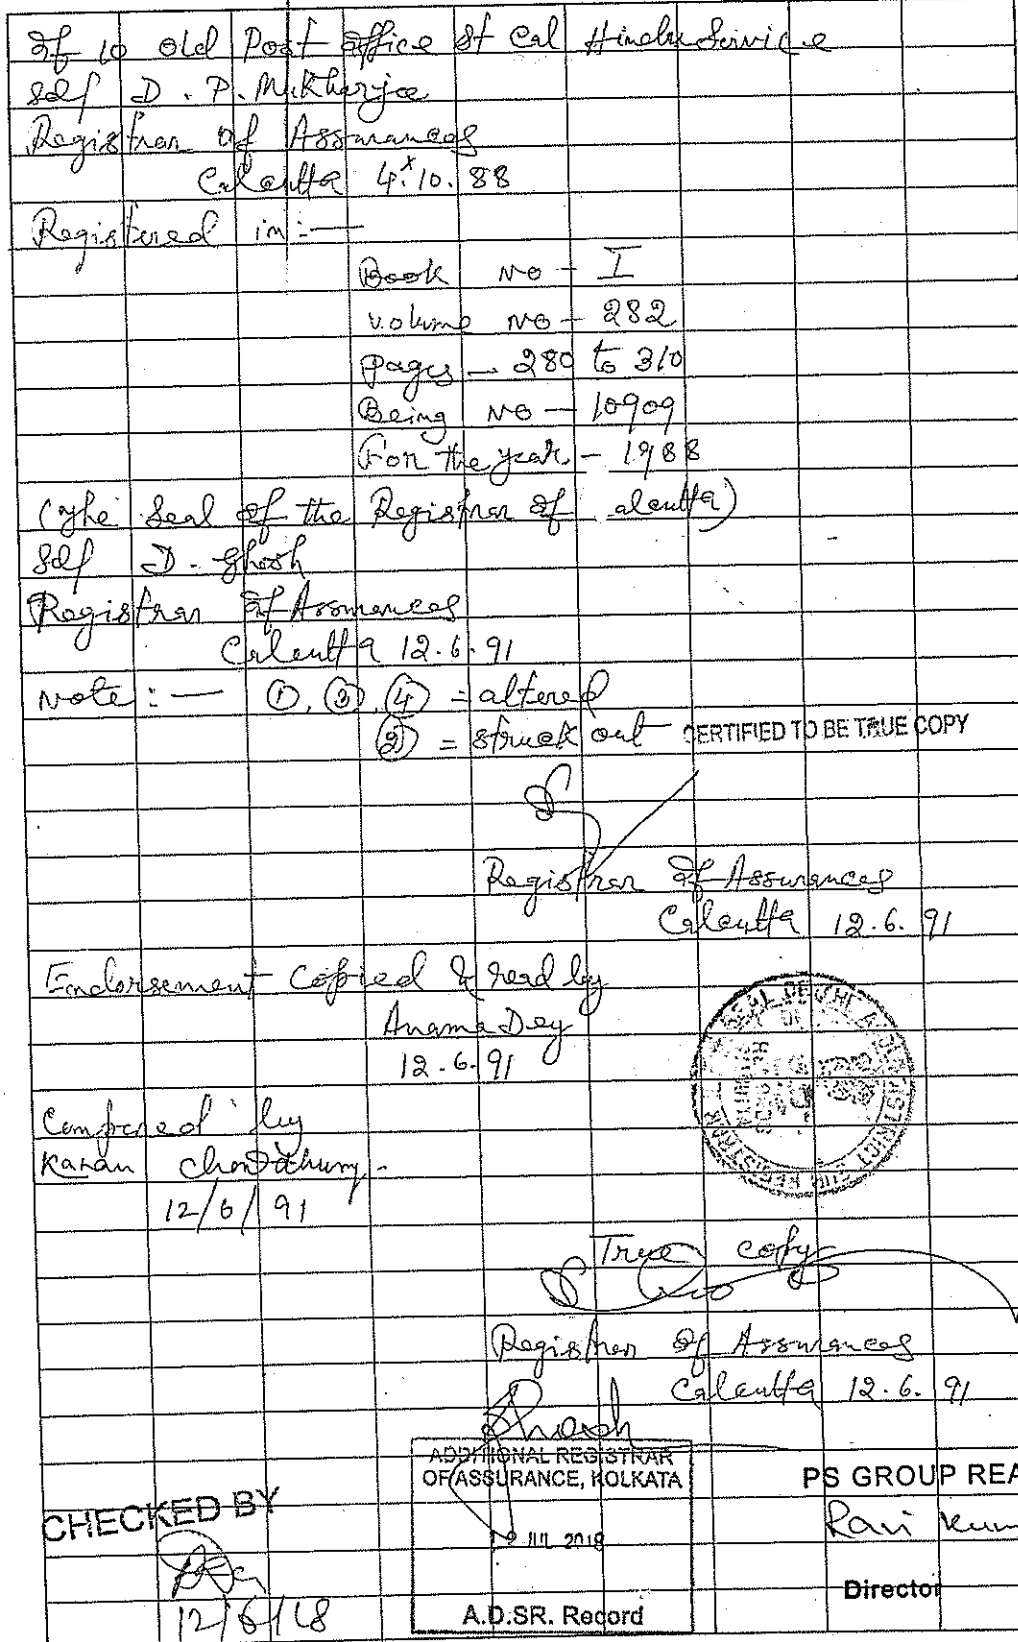 of 10 old Post office St Cal Hindu Service
Sd/ D. P. Mukherjee
Registrar of Assurances
Calcutta 4.10.88
Registered in:—
Book No - I
Volume No - 282
Pages - 280 to 310
Being No - 10909
For the year - 1988
(The Seal of the Registrar of alcutta)
Sd/ D. Ghosh
Registrar of Assurances
Calcutta 12.6.91
Note:— ①, ③, ④ = altered
② = struck out
CERTIFIED TO BE TRUE COPY
Registrar of Assurances
Calcutta 12.6.91
Endorsement Copied & read by
Anama Dey
12.6.91
Compared by
Karan Chowdhury
12/6/91
True copy
Registrar of Assurances
Calcutta 12.6.91
Ghosh
ADDITIONAL REGISTRAR
OF ASSURANCE, KOLKATA
JUL 2018
A.D.SR. Record
CHECKED BY
12/6/18
PS GROUP REA
Ravi Kum
Director